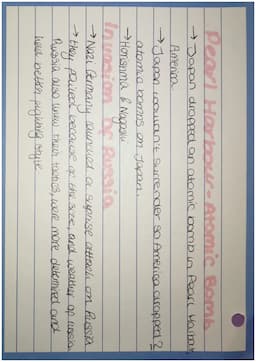 Pearl Harbour - Atomic Bomb
→ Japan dropped an atomic bomb in Pearl Harbour,
America
→ Japan wouldn't surrender so America dropped 2
atomic bombs on Japan.
→ Hiroshima & Nagasaki
Invasion of Russia
→ Nazi Germany launched a suprise attack on Russia
→ they failed because of the size, and weather of russia
Russia also knew their tactics, were more determined and
had better fighting style